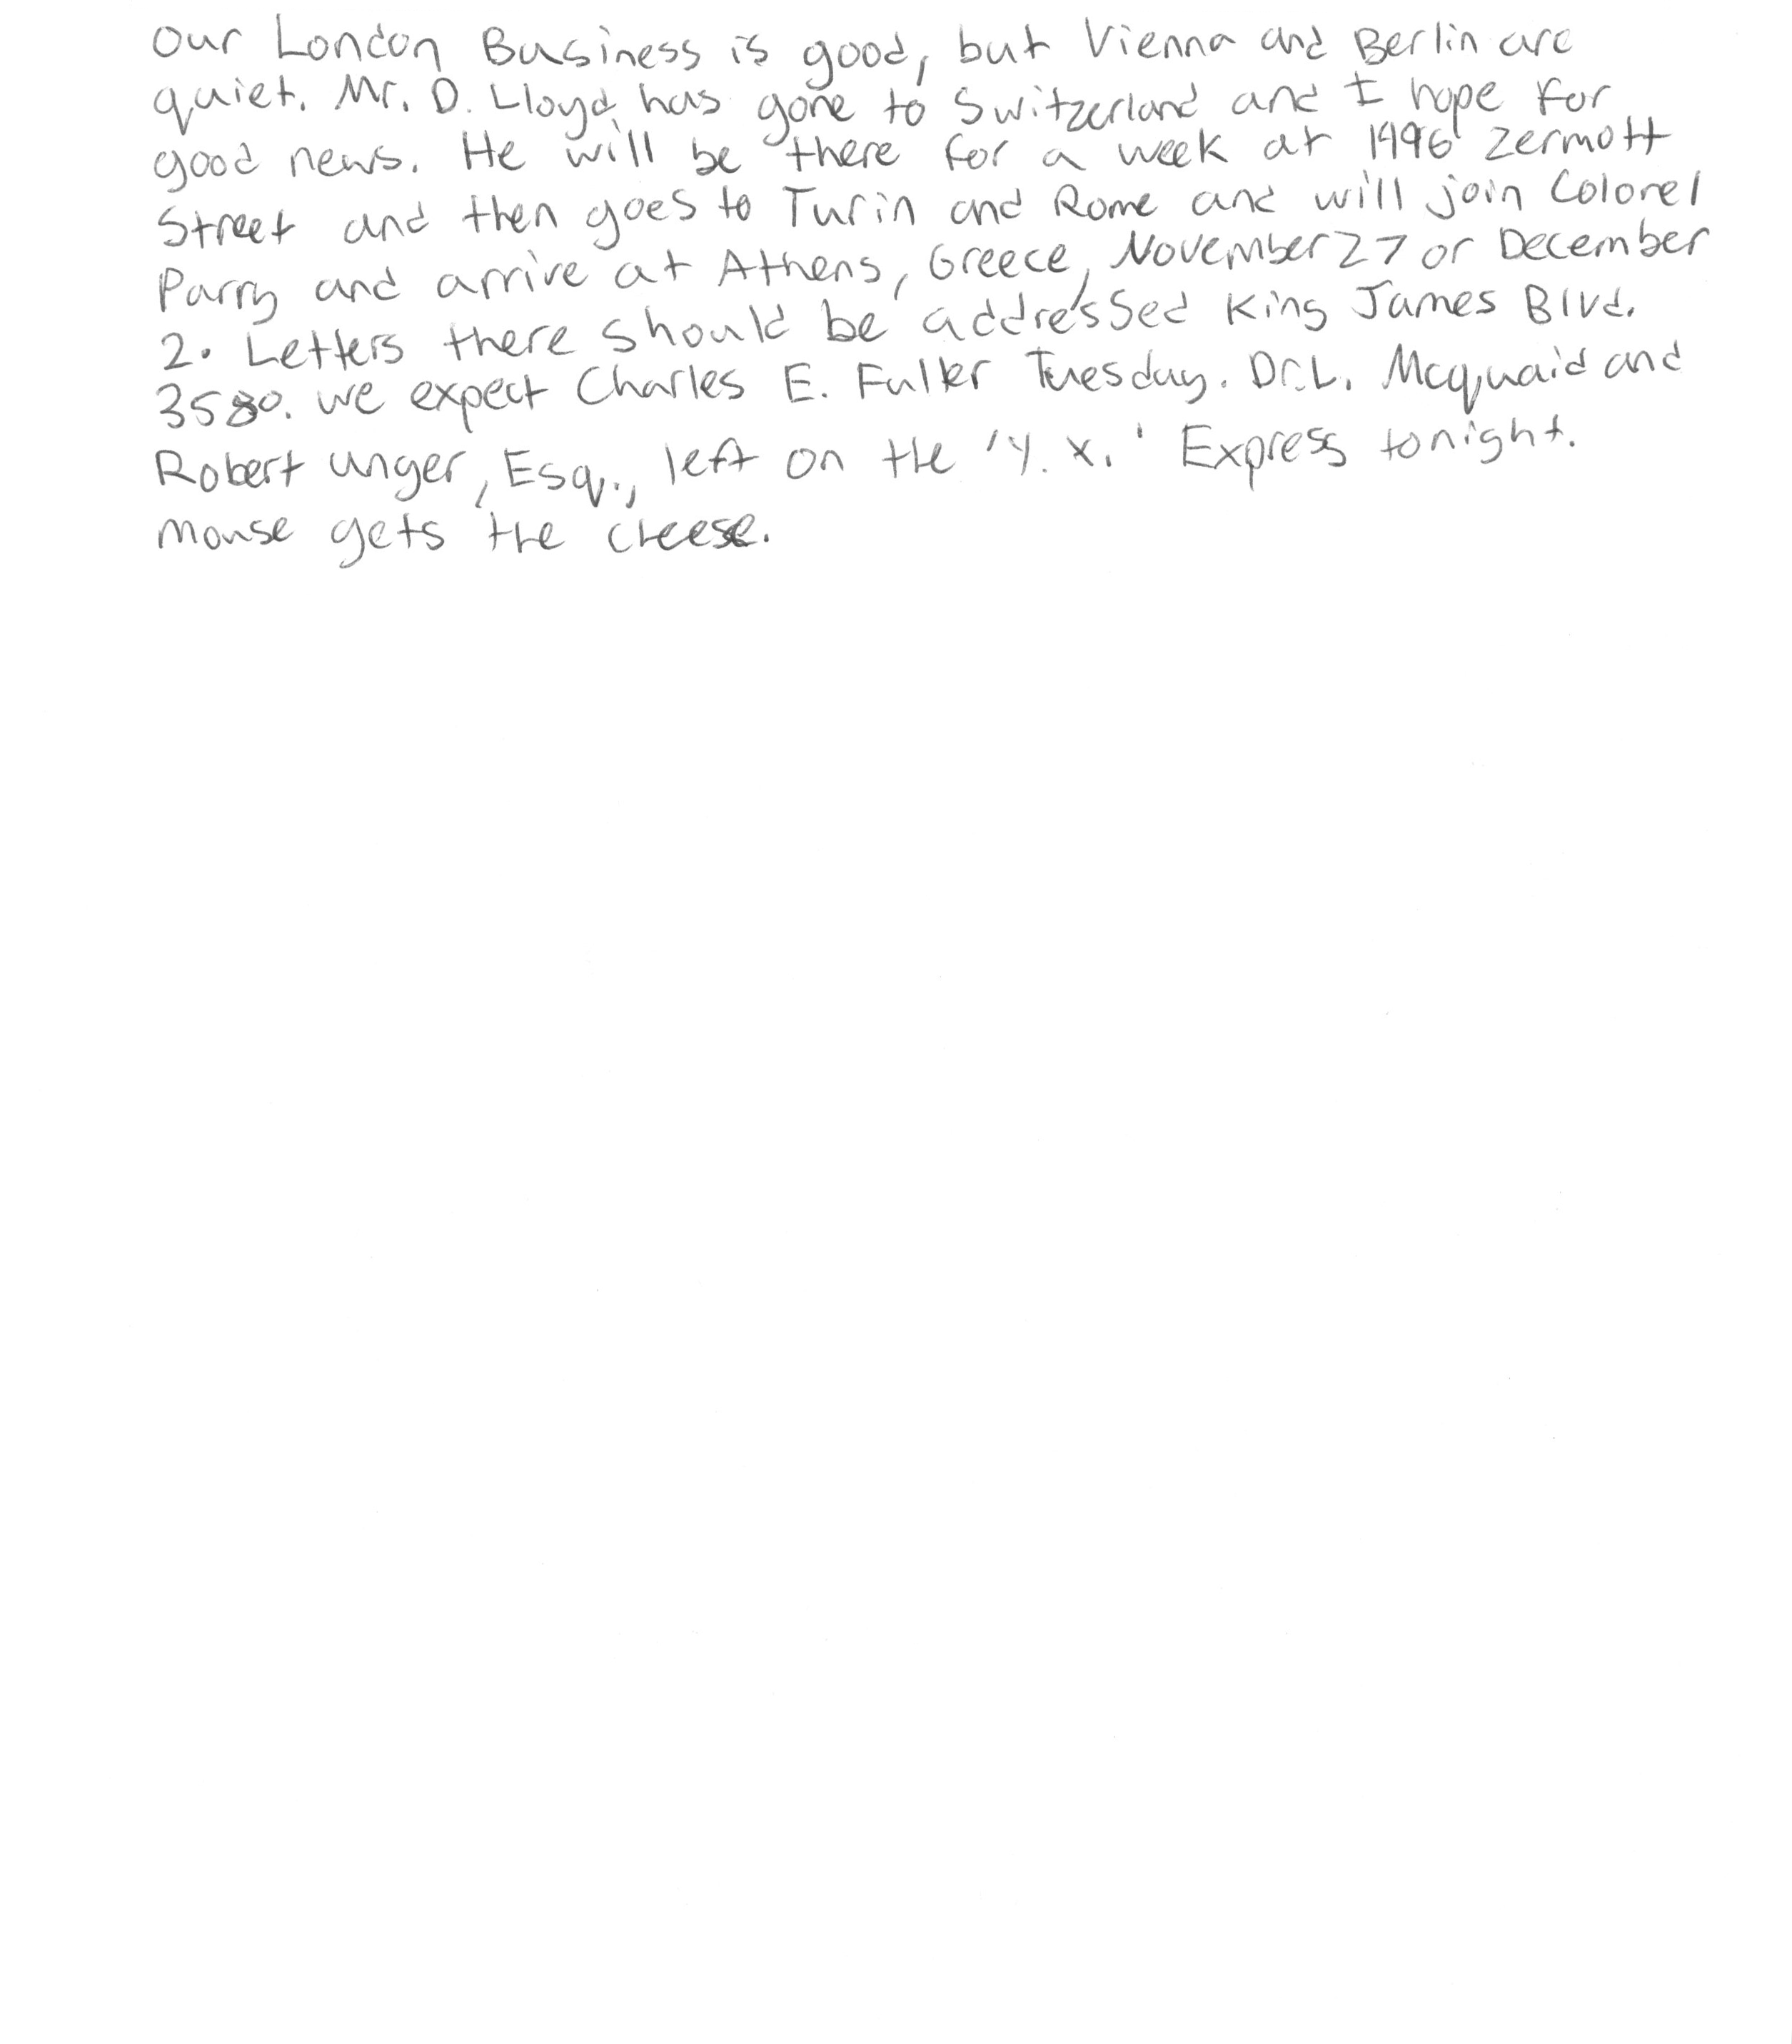 Our London Business is good, but Vienna and Berlin are
quiet. Mr. D. Lloyd has gone to Switzerland and I hope for
good news. He will be there for a week at 1496 Zermott
Street and then goes to Turin and Rome and will join Colonel
Parry and arrive at Athens, Greece, November 27 or December
2. Letters there should be addressed King James Blvd.
3580. We expect Charles E. Fuller Tuesday. Dr. L. Mcquaid and
Robert Unger, Esq., left on the 'Y. X.' Express tonight.
mouse gets the cheese.